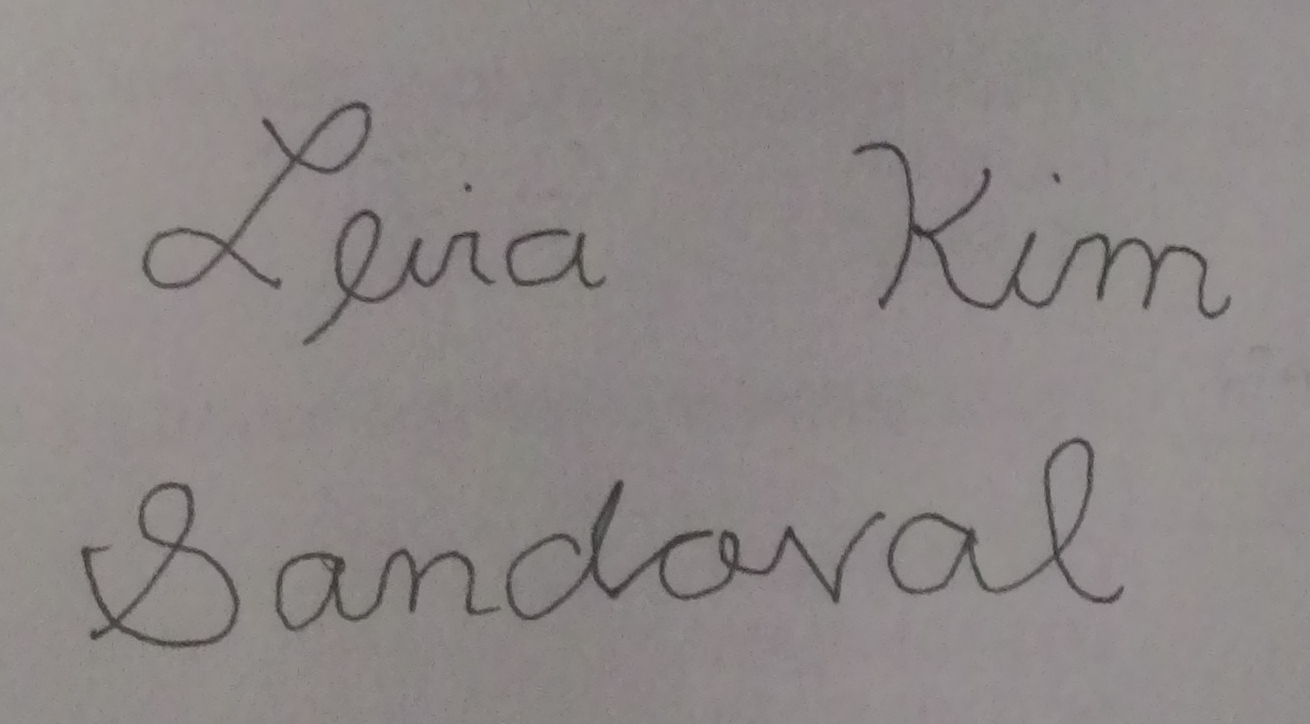 Leira Kim
Sandoval